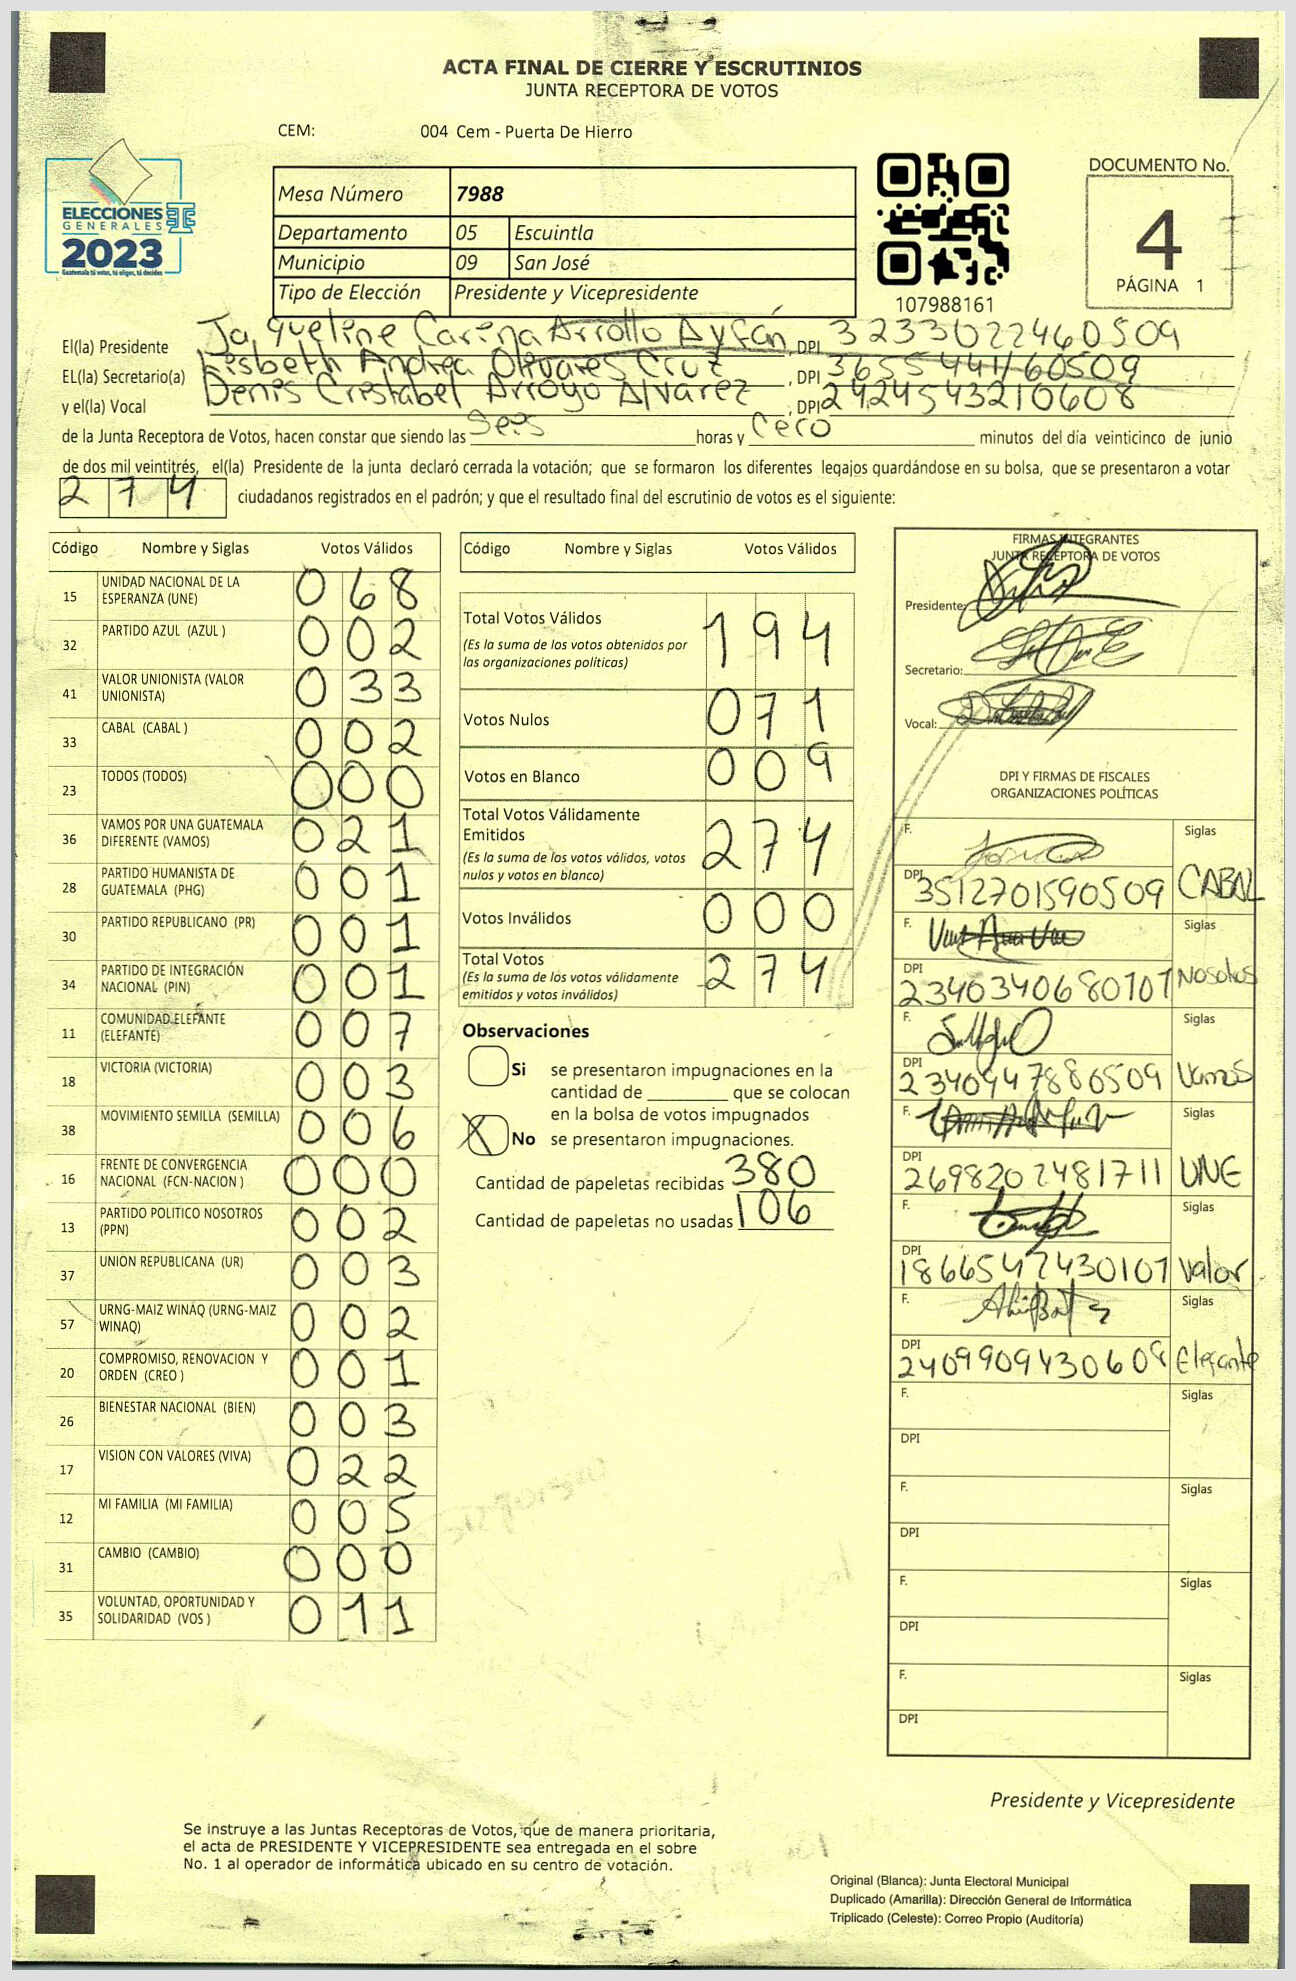 ACTA FINAL DE CIERRE Y ESCRUTINIOS
JUNTA RECEPTORA DE VOTOS
CEM: 004 Cem - Puerta De Hierro
ELECCIONES
GENERALES
2023
Guatemala tú votas, tú eliges, tú decides
Mesa Número 7988
Departamento 05 Escuintla
Municipio 09 San José
Tipo de Elección Presidente y Vicepresidente
107988161
DOCUMENTO No.
4
PÁGINA 1
El(la) Presidente Jaqueline Carina Arrollo Ayfán, DPI 3233022460509
EL(la) Secretario(a) Lisbeth Andrea Olivares Cruz, DPI 3655441160509
y el(la) Vocal Denis Crestabel Arroyo Alvarez, DPI 2424543210608
de la Junta Receptora de Votos, hacen constar que siendo las Seis horas y Cero minutos del día veinticinco de junio
de dos mil veintitrés, el(la) Presidente de la junta declaró cerrada la votación; que se formaron los diferentes legajos guardándose en su bolsa, que se presentaron a votar
274 ciudadanos registrados en el padrón; y que el resultado final del escrutinio de votos es el siguiente:
Código Nombre y Siglas Votos Válidos
15 UNIDAD NACIONAL DE LA ESPERANZA (UNE) 068
32 PARTIDO AZUL (AZUL ) 002
41 VALOR UNIONISTA (VALOR UNIONISTA) 033
33 CABAL (CABAL ) 002
23 TODOS (TODOS) 000
36 VAMOS POR UNA GUATEMALA DIFERENTE (VAMOS) 021
28 PARTIDO HUMANISTA DE GUATEMALA (PHG) 001
30 PARTIDO REPUBLICANO (PR) 001
34 PARTIDO DE INTEGRACIÓN NACIONAL (PIN) 001
11 COMUNIDAD ELEFANTE (ELEFANTE) 007
18 VICTORIA (VICTORIA) 003
38 MOVIMIENTO SEMILLA (SEMILLA) 006
16 FRENTE DE CONVERGENCIA NACIONAL (FCN-NACION ) 000
13 PARTIDO POLITICO NOSOTROS (PPN) 002
37 UNION REPUBLICANA (UR) 003
57 URNG-MAIZ WINAQ (URNG-MAIZ WINAQ) 002
20 COMPROMISO, RENOVACION Y ORDEN (CREO ) 001
26 BIENESTAR NACIONAL (BIEN) 003
17 VISION CON VALORES (VIVA) 022
12 MI FAMILIA (MI FAMILIA) 005
31 CAMBIO (CAMBIO) 000
35 VOLUNTAD, OPORTUNIDAD Y SOLIDARIDAD (VOS ) 011
Código Nombre y Siglas Votos Válidos
Total Votos Válidos 194
(Es la suma de los votos obtenidos por
las organizaciones políticas)
Votos Nulos 071
Votos en Blanco 009
Total Votos Válidamente
Emitidos 274
(Es la suma de los votos válidos, votos
nulos y votos en blanco)
Votos Inválidos 000
Total Votos 274
(Es la suma de los votos válidamente
emitidos y votos inválidos)
Observaciones
Si se presentaron impugnaciones en la
cantidad de ________ que se colocan
en la bolsa de votos impugnados
X No se presentaron impugnaciones.
Cantidad de papeletas recibidas 380
Cantidad de papeletas no usadas 106
FIRMAS INTEGRANTES
JUNTA RECEPTORA DE VOTOS
Presidente:
Secretario:
Vocal:
DPI Y FIRMAS DE FISCALES
ORGANIZACIONES POLÍTICAS
F. Siglas
DPI 3512701590509 CABAL
F. Siglas
DPI 2340340680101 Nosotros
F. Siglas
DPI 2340947880509 Vamos
F. Siglas
DPI 2698202481711 UNE
F. Siglas
DPI 1866547430101 Valor
F. Siglas
DPI 2409909430608 Elefante
F. Siglas
DPI
F. Siglas
DPI
F. Siglas
DPI
F. Siglas
DPI
Presidente y Vicepresidente
Se instruye a las Juntas Receptoras de Votos, que de manera prioritaria,
el acta de PRESIDENTE Y VICEPRESIDENTE sea entregada en el sobre
No. 1 al operador de informática ubicado en su centro de votación.
Original (Blanca): Junta Electoral Municipal
Duplicado (Amarilla): Dirección General de Informática
Triplicado (Celeste): Correo Propio (Auditoría)